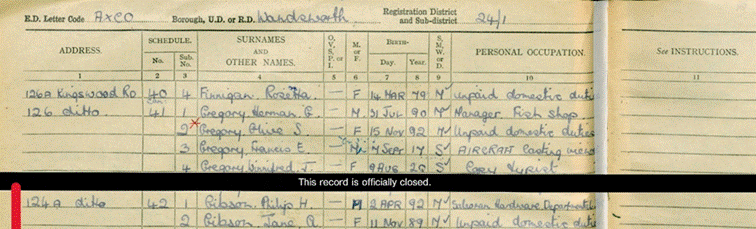 E.D. Letter Code AXCO Borough, U.D. or R.D. Wandsworth Registration District and Sub-district 24/1
ADDRESS. SCHEDULE. No. Sub. No. SURNAMES AND OTHER NAMES. O, V, S, P, or I. M. or F. BIRTH- Day. Year. S, M, W, or D. PERSONAL OCCUPATION. See INSTRUCTIONS.
1 2 3 4 5 6 7 8 9 10 11
126A Kingswood Rd 40 4 Finnigan, Rosetta. – F 14 MAR 79 M Unpaid domestic duties
126 ditto 41 1 Gregory, Herman G. – M 31 JUL 90 M Manager Fish Shop.
2 Gregory, Olive S. – F 15 Nov 92 M Unpaid domestic duties
3 Gregory, Francis E. M 7 Sept 17 S AIRCRAFT
4 Gregory Winifred J. – F 9 AUG 20 S Copy Typist
This record is officially closed.
124A ditto 42 1 Gibson, Philip H. M 2 APR 92 M Salesman Hardware Department
2 Gibson, Jane A. F 11 Nov 89 M Unpaid domestic duties